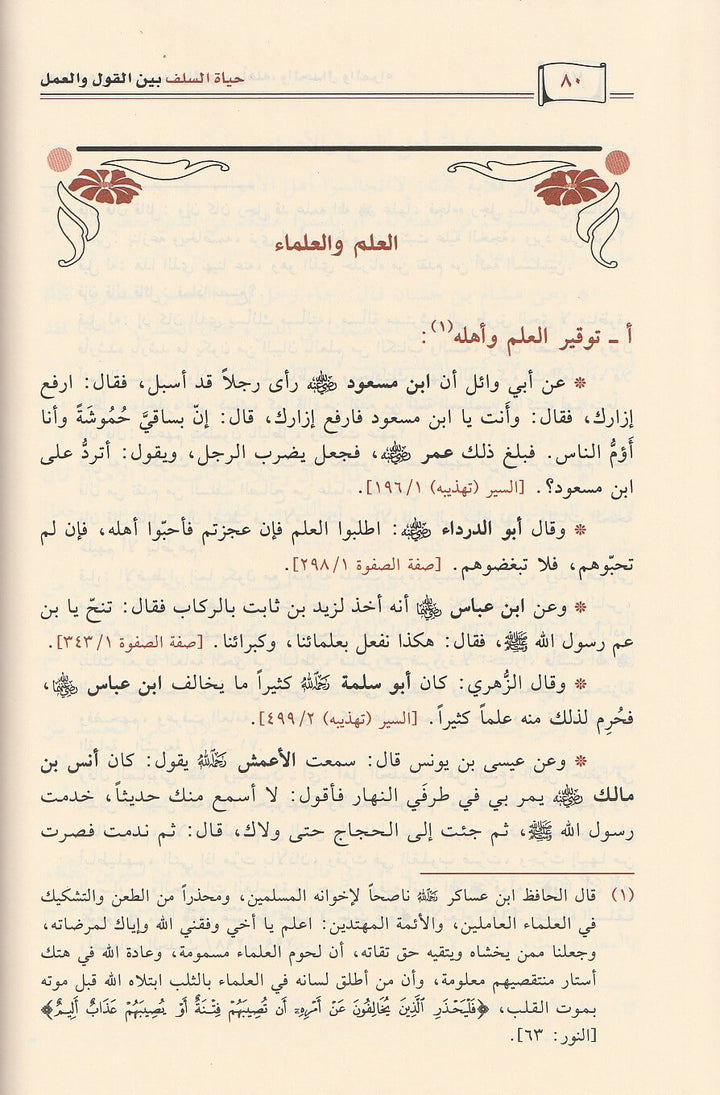 ٨٠
حياة السلف بين القول والعمل
العلم والعلماء
أ ـ توقير العلم وأهله(١):
* عن أبي وائل أن ابن مسعود رضي الله عنه رأى رجلاً قد أسبل، فقال: ارفع
إزارك، فقال: وأَنت يا ابن مسعود فارفع إزارك، قال: إنّ بساقيَّ حُمُوشَةً وأنا
أَؤمُّ الناس. فبلغ ذلك عمر رضي الله عنه، فجعل يضرب الرجل، ويقول: أتردُّ على
ابن مسعود؟. [السير (تهذيبه) ١٩٦/١].
* وقال أبو الدرداء رضي الله عنه: اطلبوا العلم فإن عجزتم فأحبّوا أهله، فإن لم
تحبّوهم، فلا تبغضوهم. [صفة الصفوة ٢٩٨/١].
* وعن ابن عباس رضي الله عنهما أنه أخذ لزيد بن ثابت بالركاب فقال: تنحّ يا بن
عم رسول الله ﷺ، فقال: هكذا نفعل بعلمائنا، وكبرائنا. [صفة الصفوة ٣٤٣/١].
* وقال الزُّهري: كان أبو سلمة رحمه الله كثيراً ما يخالف ابن عباس رضي الله عنهما،
فحُرِم لذلك منه علماً كثيراً. [السير (تهذيبه) ٤٩٩/٢].
* وعن عيسى بن يونس قال: سمعت الأعمش رحمه الله يقول: كان أنس بن
مالك رضي الله عنه يمر بي في طرفَي النهار فأقول: لا أسمع منك حديثاً، خدمت
رسول الله ﷺ، ثم جئت إلى الحجاج حتى ولاك، قال: ثم ندمت فصرت
(١) قال الحافظ ابن عساكر رحمه الله ناصحاً لإخوانه المسلمين، ومحذراً من الطعن والتشكيك
في العلماء العاملين، والأئمة المهتدين: اعلم يا أخي وفقني الله وإياك لمرضاته،
وجعلنا ممن يخشاه ويتقيه حق تقاته، أن لحوم العلماء مسمومة، وعادة الله في هتك
أستار منتقصيهم معلومة، وأن من أطلق لسانه في العلماء بالثلب ابتلاه الله قبل موته
بموت القلب، ﴿فَلْيَحْذَرِ ٱلَّذِينَ يُخَالِفُونَ عَنْ أَمْرِهِۦٓ أَن تُصِيبَهُمْ فِتْنَةٌ أَوْ يُصِيبَهُمْ عَذَابٌ أَلِيمٌ﴾
[النور: ٦٣].